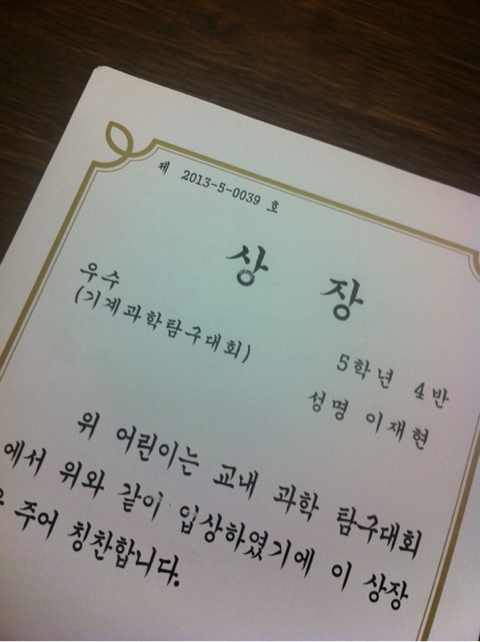 제 2013-5-0039 호
상 장
우수
(기계과학탐구대회)
5학년 4반
성명 이재현
위 어린이는 교내 과학 탐구대회
에서 위와 같이 입상하였기에 이 상장
주어 칭찬합니다.